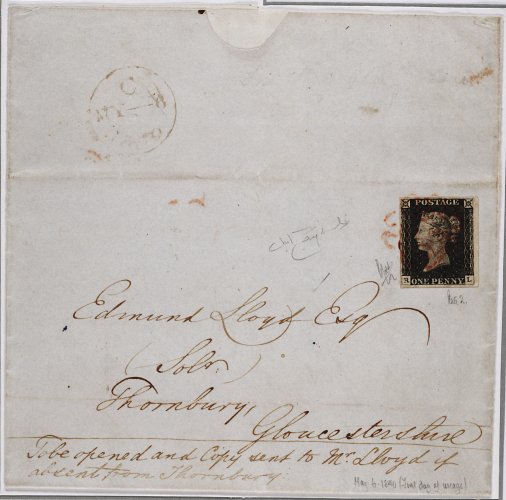 POSTAGE
S L
ONE PENNY
Edmund Lloyd Esq
(Solr.)
Thornbury,
Gloucestershire
To be opened and Copy sent to Mr. Lloyd if
absent from Thornbury
May 6 1840 (First day of usage)